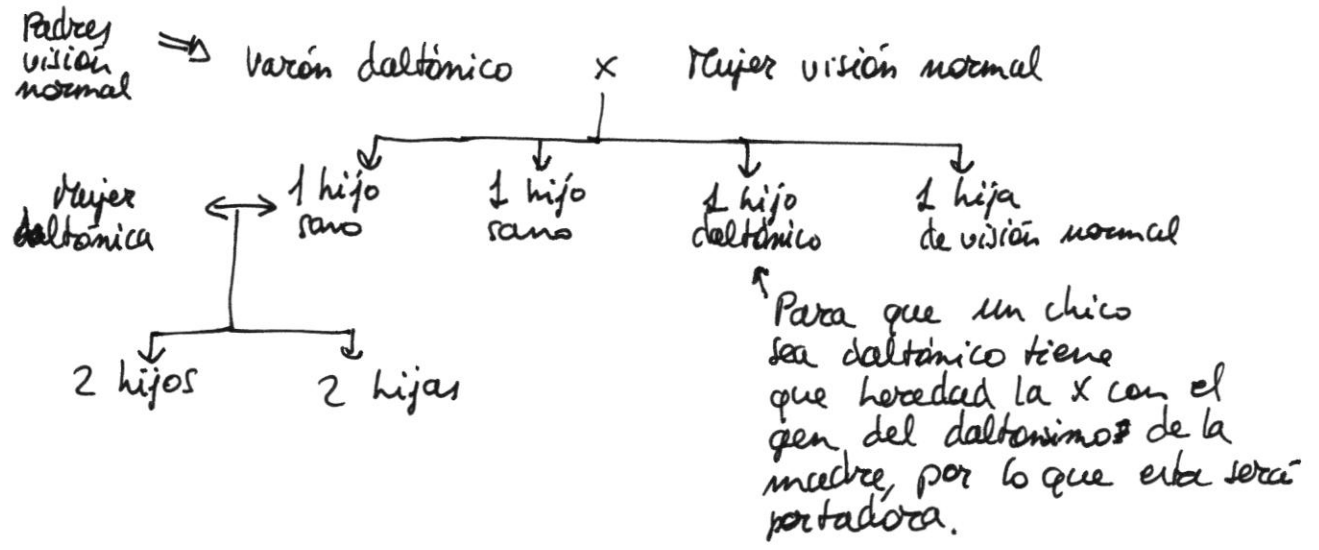 Padres
visión
normal
varón daltónico x Mujer visión normal
Mujer
daltónica
1 hijo
sano
1 hijo
sano
1 hijo
daltónico
1 hija
de visión normal
2 hijos
2 hijas
Para que un chico
sea daltónico tiene
que heredad la x con el
gen del daltonimo de la
madre, por lo que esta será
portadora.